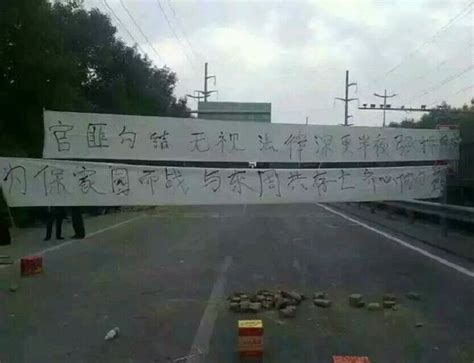 官匪勾结 无视 法律深更半夜强拆
为保家园而战 与东周共存亡